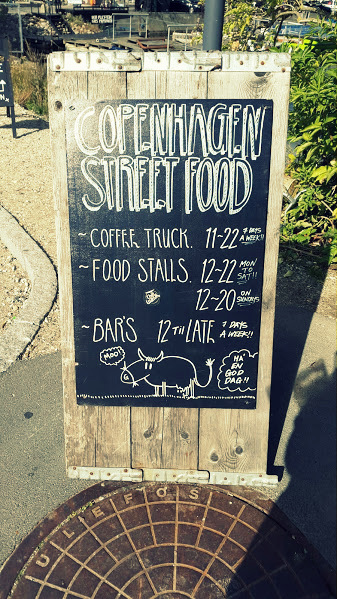 COPENHAGEN
STREET FOOD
~COFFEE TRUCK. 11-22 7 DAYS A WEEK!!
~FOOD STALLS. 12-22 MON TO SAT!!
12-20 ON SUNDAYS
~BAR'S 12 TIL LATE 7 DAYS A WEEK!!
MOO!!
HA'
EN
GOD
DAG!!
ULEFOS